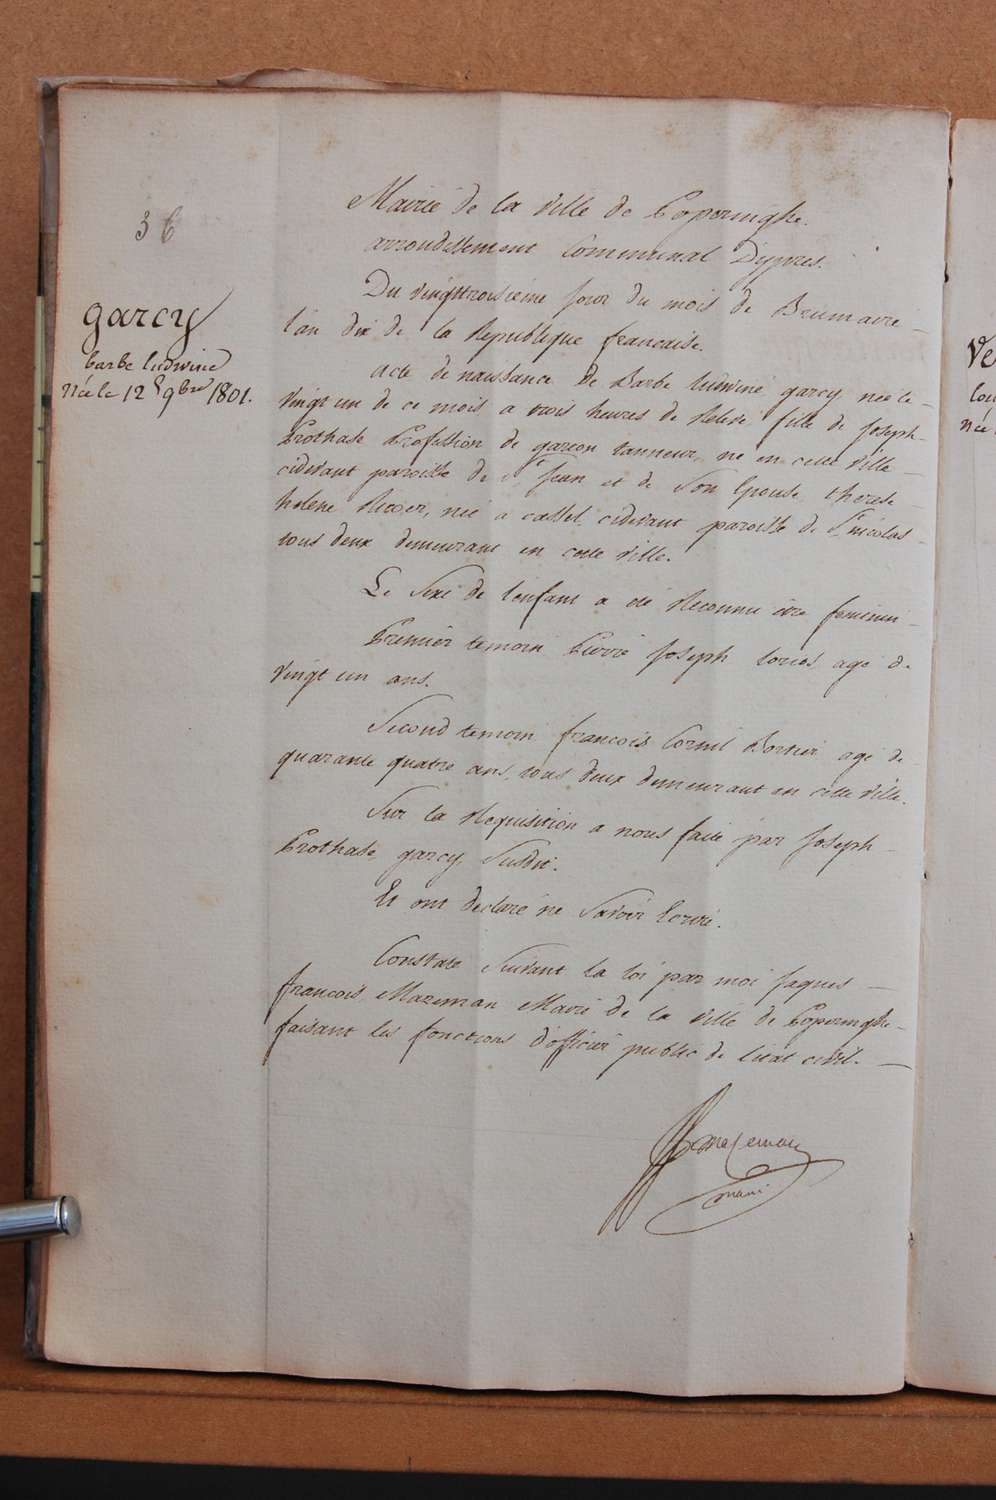 36
garcy
barbe ludwine
née le 12 9bre 1801.
Mairie de la ville de Poperinghe.
arrondissement Communal D'ypres.
Du vingttroisieme jour du mois de Brumaire
l'an dix de la Republique francaise.
acte de naissance de Barbe ludwine garcy née le
vingt un de ce mois a trois heures de Relevé fille de Joseph
Prothase Profession de garcon tanneur, né en cette ville
cidevant paroisse de St Jean et de Son Epouse therese
helene née a cassel cidevant paroisse de St nicolas
tous deux demeurant en cette ville.
Le Sexe de l'enfant a été Reconnu être feminin
Premier temoin Pierre Joseph agé de
vingt un ans.
Second temoin francois Cornil Bortier agé de
quarante quatre ans, tous deux demeurant en cette ville.
Sur la Requisition a nous faite par Joseph
Prothase garcy Susdit.
Et ont declaré ne Savoir Ecrire.
Constaté Suivant la loi par moi Jaques
francois Mazeman Maire de la ville de Poperinghe
faisant les fonctions d'officier public de l'état civil.
Mazeman
maire
Ve
lou
née